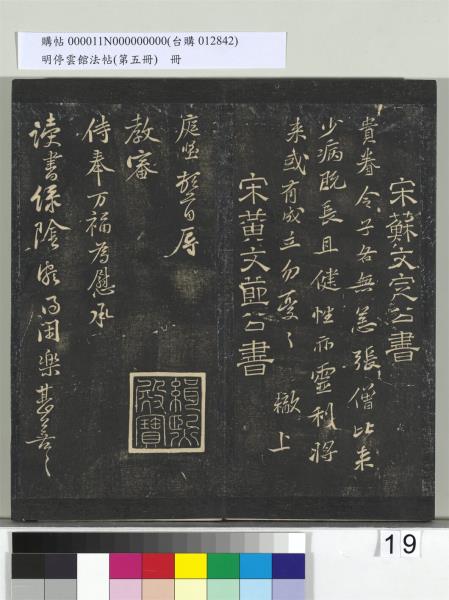 購帖 000011N000000000(台購 012842)
明停雲館法帖(第五冊) 冊
宋蘇文定公書
貴眷令子各無恙張僧比来
少病既長且健性亦靈利將
来或有成立勿憂〻 轍上
宋黃文節公書
庭堅頓首辱
教審
侍奉万福為慰承
讀書綠陰頗得閑樂甚善〻
緝熙
殿寶
19